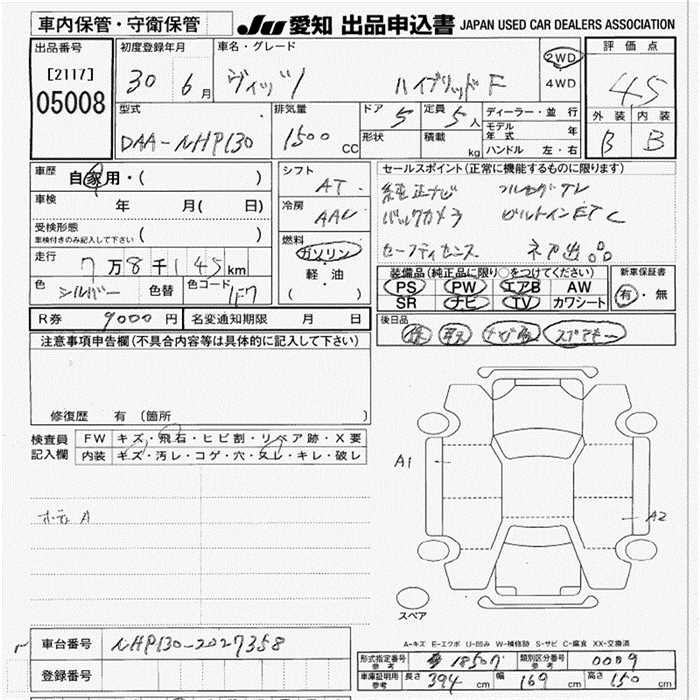 車内保管・守衛保管
JU 愛知 出品申込書 JAPAN USED CAR DEALERS ASSOCIATION
出品番号
[2117]
05008
初度登録年月
30 6月
車名・グレード
ヴィッツ ハイブリッド F
2WD
4WD
評価点
4.5
外装 内装
B B
型式
DAA-NHP130
排気量
1500 CC
ドア 5
形状
定員 5人
積載 kg
ディーラー・並行
モデル年式 年
ハンドル 左・右
車歴 自家用・( )
車検 年 月( 日)
受検形態
車検付きのみ記入して下さい ( )
走行 7万8千145km
色 シルバー 色替 色コード 1F7
シフト AT
冷房 AAC
燃料
ガソリン
軽・油
( )
セールスポイント(正常に機能するものに限ります)
純正ナビ フルセグTV
バックカメラ ビルトインETC
セーフティセンス
装備品(純正品に限り○をつけてください)
PS PW エアB AW
SR ナビ TV カワシート
新車保証書
有・無
R券 9000円 名変通知期限 月 日
後日品
保 取 スペアキー
注意事項申告欄(不具合内容等は具体的に記入して下さい)
修復歴 有(箇所 )
検査員記入欄
FW キズ・飛石・ヒビ割・リペア跡・X要
内装 キズ・汚レ・コゲ・穴・スレ・キレ・破レ
ボディ A
A1
A2
スペア
A-キズ E-エクボ U-凹み W-補修跡 S-サビ C-腐食 XX-交換済
車台番号 NHP130-2027358
登録番号
形式指定番号 参考 18507 類別区分番号 参考 0009
車庫証明用 参考 長さ 394cm 幅 169cm 高さ 150cm